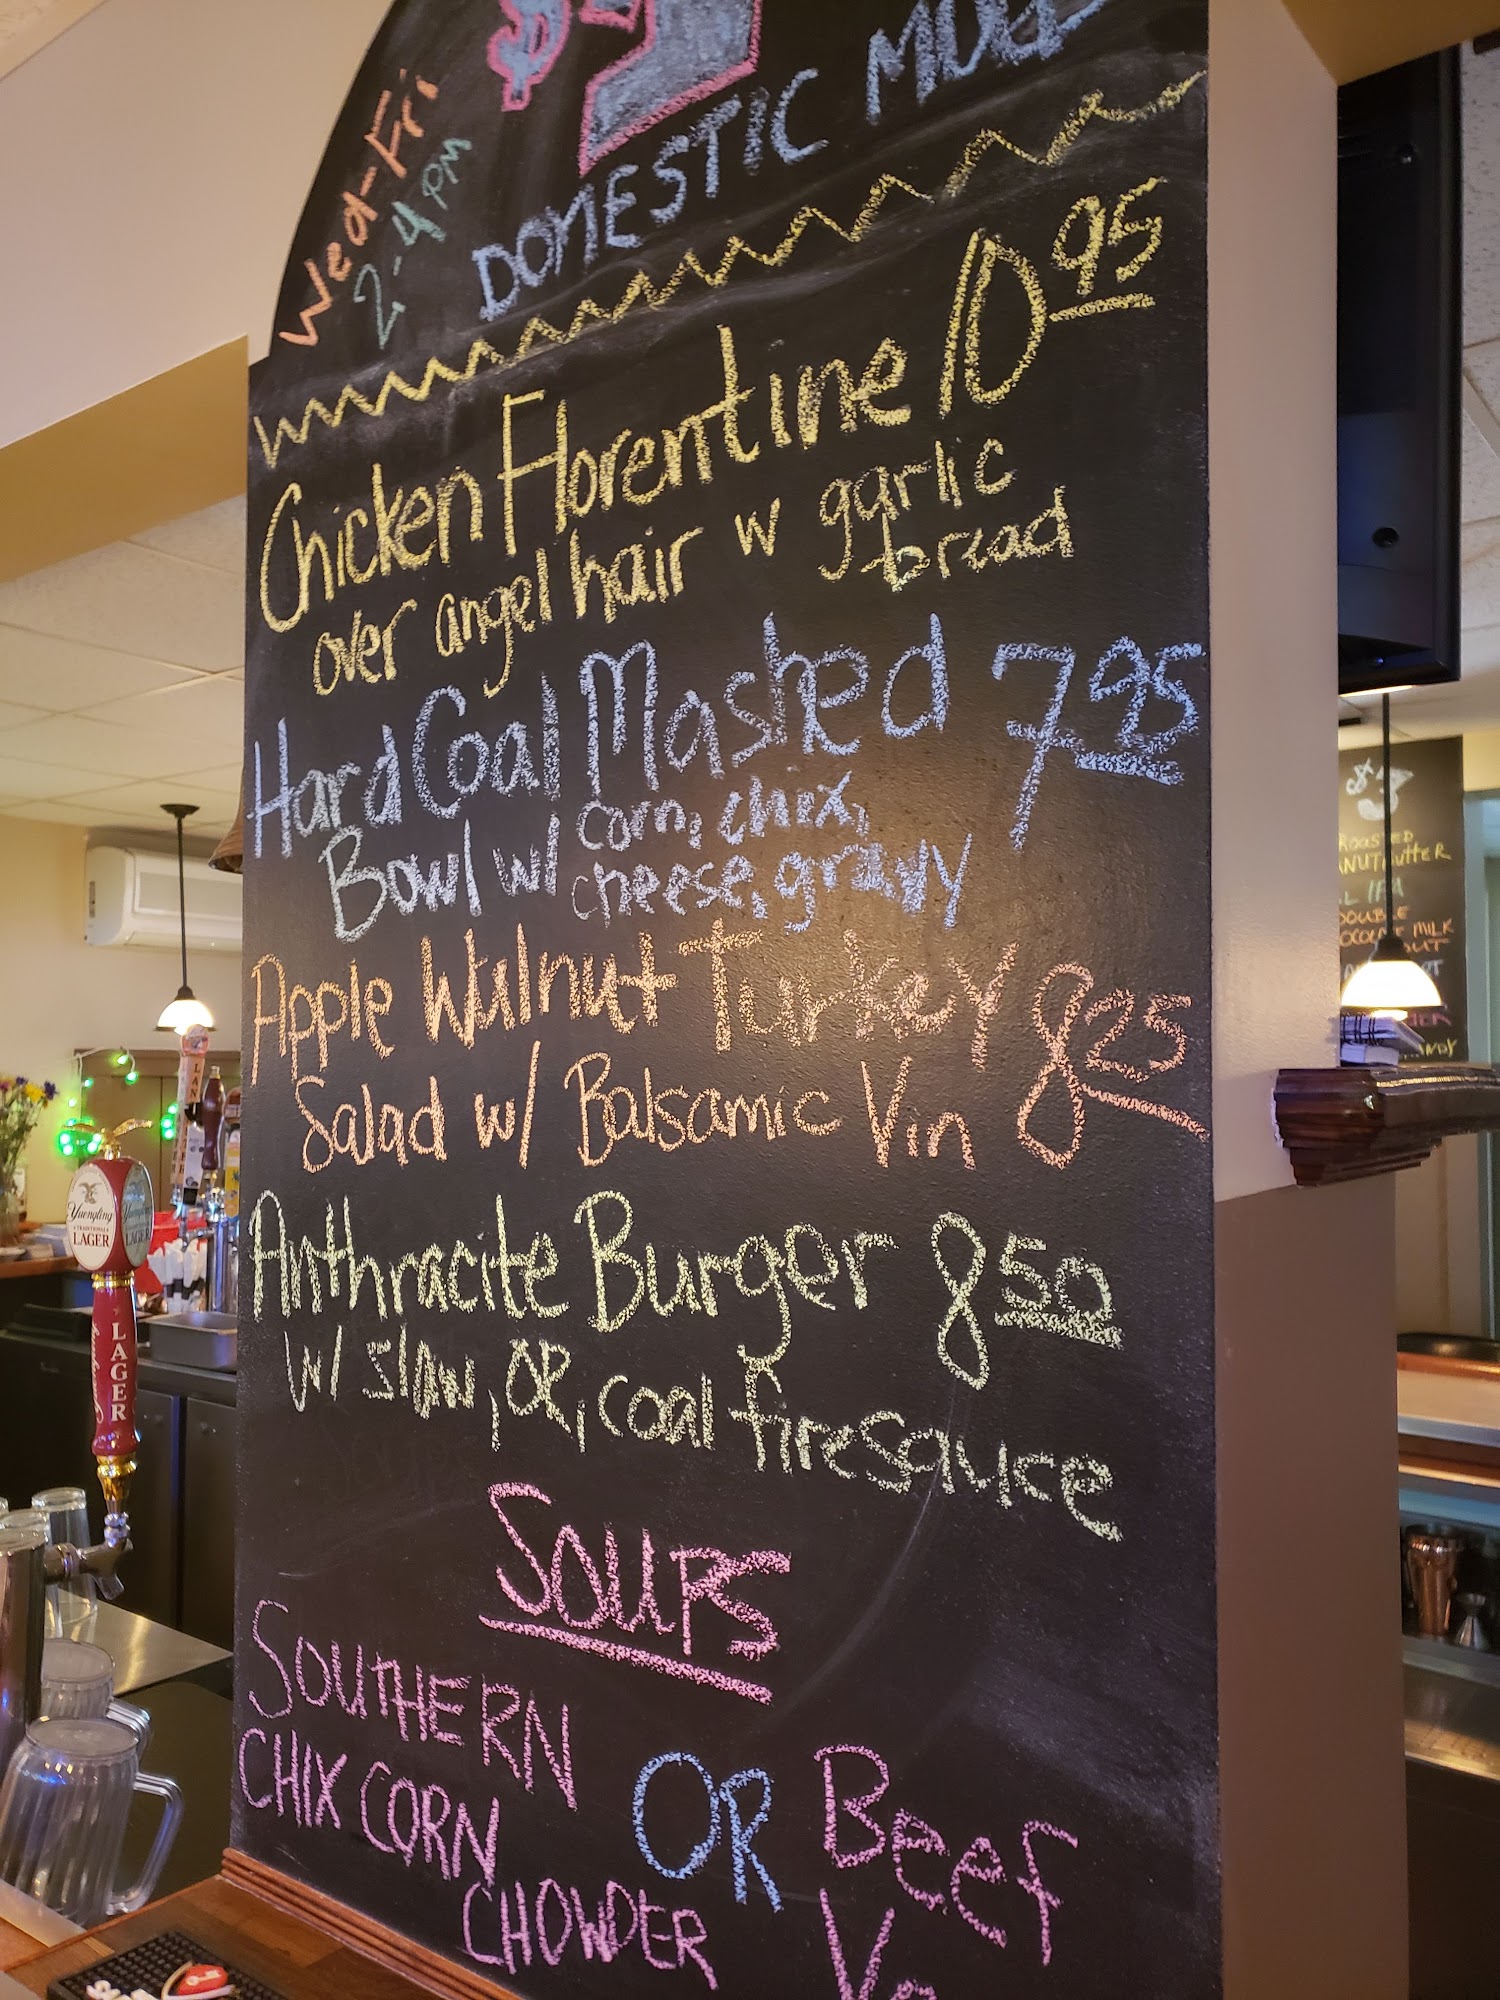 Wed-Fri
2-4 PM
$2
DOMESTIC
Chicken Florentine 10 95
over angel hair w garlic
bread
Hard Coal Mashed 7 95
Bowl w/ corn, chix,
cheese, gravy
Apple Walnut Turkey 8 25
Salad w/ Balsamic Vin
Anthracite Burger 8 50
w/ slaw, OR, coal firesauce
SOUPS
SOUTHERN
CHIX CORN
CHOWDER
OR
Beef
Yuengling
TRADITIONAL
LAGER
LAGER
ROASTED
IPA
DOUBLE
MILK